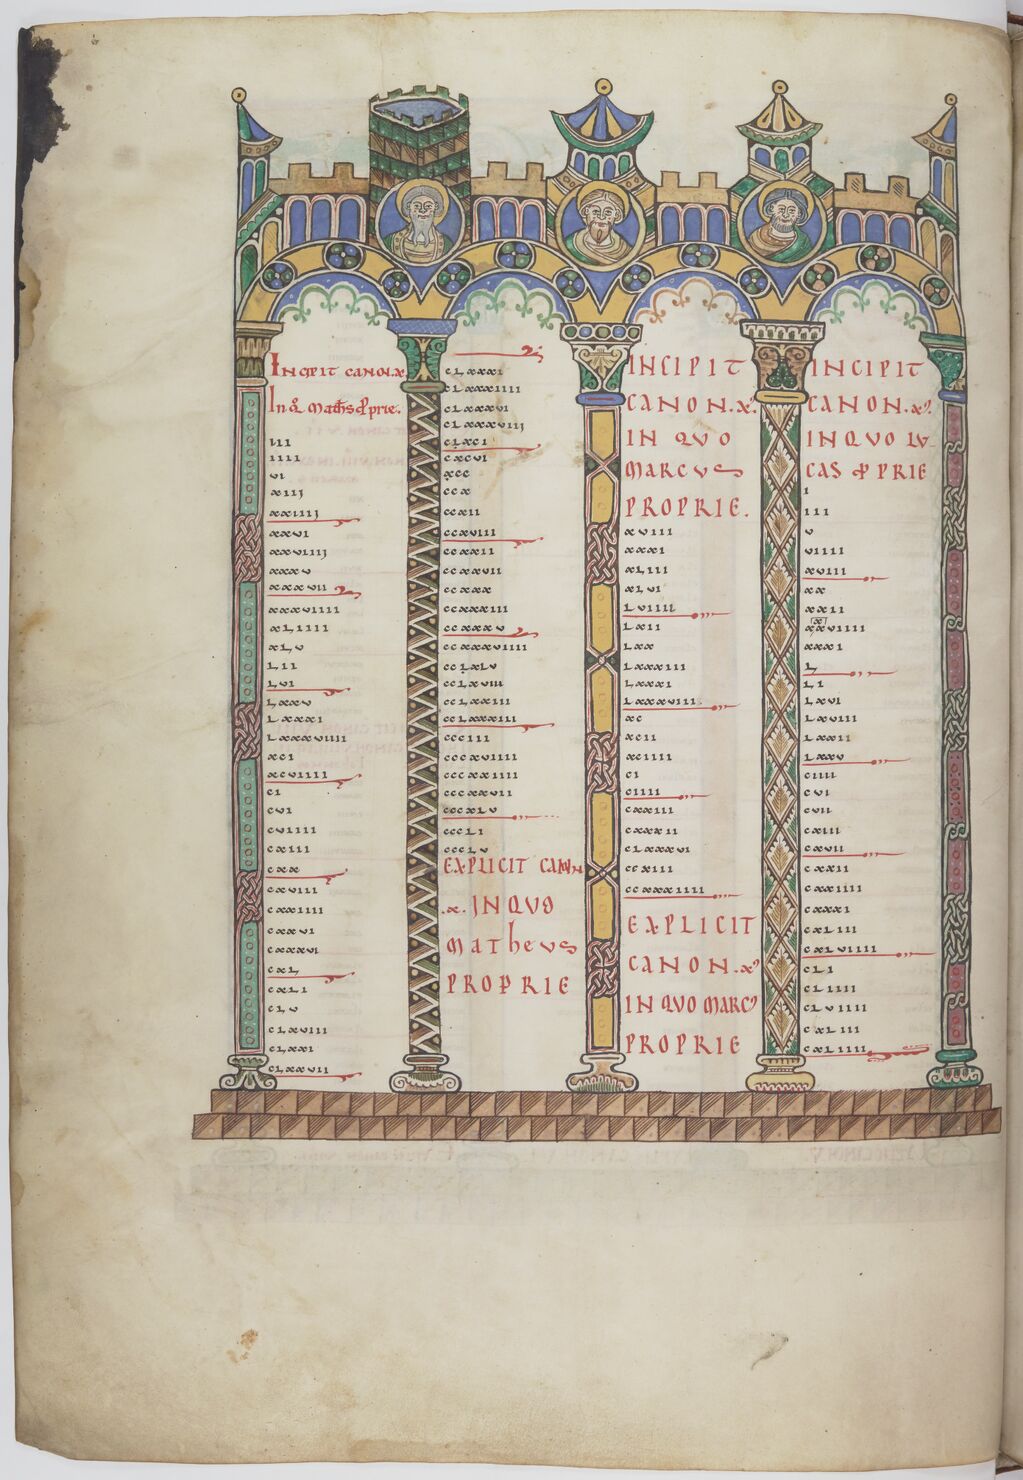 INCIPIT CANON .x.
In q̊ Matħs ꝓprie.
III
IIII
VI
XIIJ
XXIIIJ
XXVI
XXVIIIJ
XXXV
XXXVII
XXXVIIII
XLIIII
XLV
LII
LVI
LXXV
LXXXI
LXXXVIIII
XCI
XCVIIII
CI
CVI
CVIIII
CXIII
CXX
CXVIII
CXXIIII
CXXVI
CXXXVI
CXL
CXLI
CLV
CLXVIII
CLXXI
CLXXVII
CLXXXI
CLXXXIIII
CLXXXVI
CLXXXVIIJ
CLXCI
CXCVI
XCC
CCX
CCXII
CCXVIII
CCXXII
CCXXVII
CCXXX
CCXXXIII
CCXXXV
CCXXXVIIII
CCLXLV
CCLXVIII
CCLXXIII
CCLXXXIII
CCCIII
CCCXVIIII
CCCXXIIII
CCCXXVII
CCCXLV
CCCLI
CCCLV
EXPLICIT CANON
.x. IN QVO
MATHEVS
PROPRIE
INCIPIT
CANON .x.
IN QVO
MARCVS
PROPRIE.
XVIII
XXXI
XLIII
XLVI
LVIIII
LXII
LXX
LXXXIII
LXXXI
LXXXVIII
XC
XCII
XCIIII
CI
CIIII
CXXIII
CXXXII
CLXXXVI
CCXIII
CCXXXIIII
EXPLICIT
CANON .x.
IN QVO MARCꝰ
PROPRIE
INCIPIT
CANON .x.
IN QVO LV
CAS ꝓPRIE
I
III
V
VIIII
XVIII
XX
XXII
XXVIIII
XXXI
L
LI
LXVI
LXVIII
LXXII
LXXV
CIIII
CVI
CVII
CXIII
CXVII
CXXII
CXXIIII
CXXXI
CXLIII
CXLVIIII
CLI
CLIIII
CLVIIII
CXLIII
CXLIIII